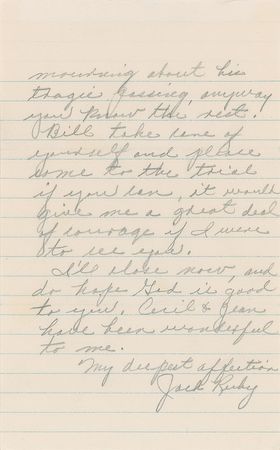 mourning about his
tragic passing, anyway
you know the rest.
Bill take care of
yourself and please
come to the trial
if you can, it would
give me a great deal
of courage if I were
to see you.
I'll close now, and
do hope God is good
to you. Cecil & Jean
have been wonderful
to me.
My deepest affection
Jack Ruby